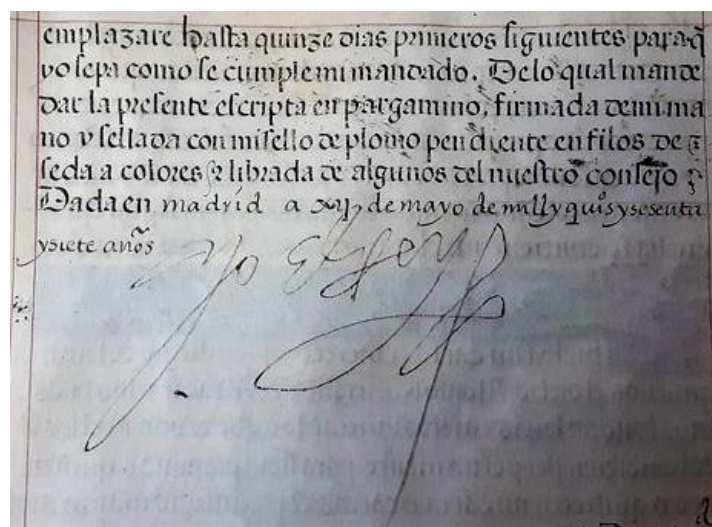 emplazare hasta quinze dias primeros siguientes para q̄
yo sepa como se cumple mi mandado. Delo qual mande
dar la presente escripta en pargamino, firmada de mi ma
no y sellada con mi sello de plomo pendiente en filos de
seda a colores librada de algunos del nuestro consejo
Dada en madrid a xij de mayo de mill y quis y sesenta
y siete años
yo el Rey